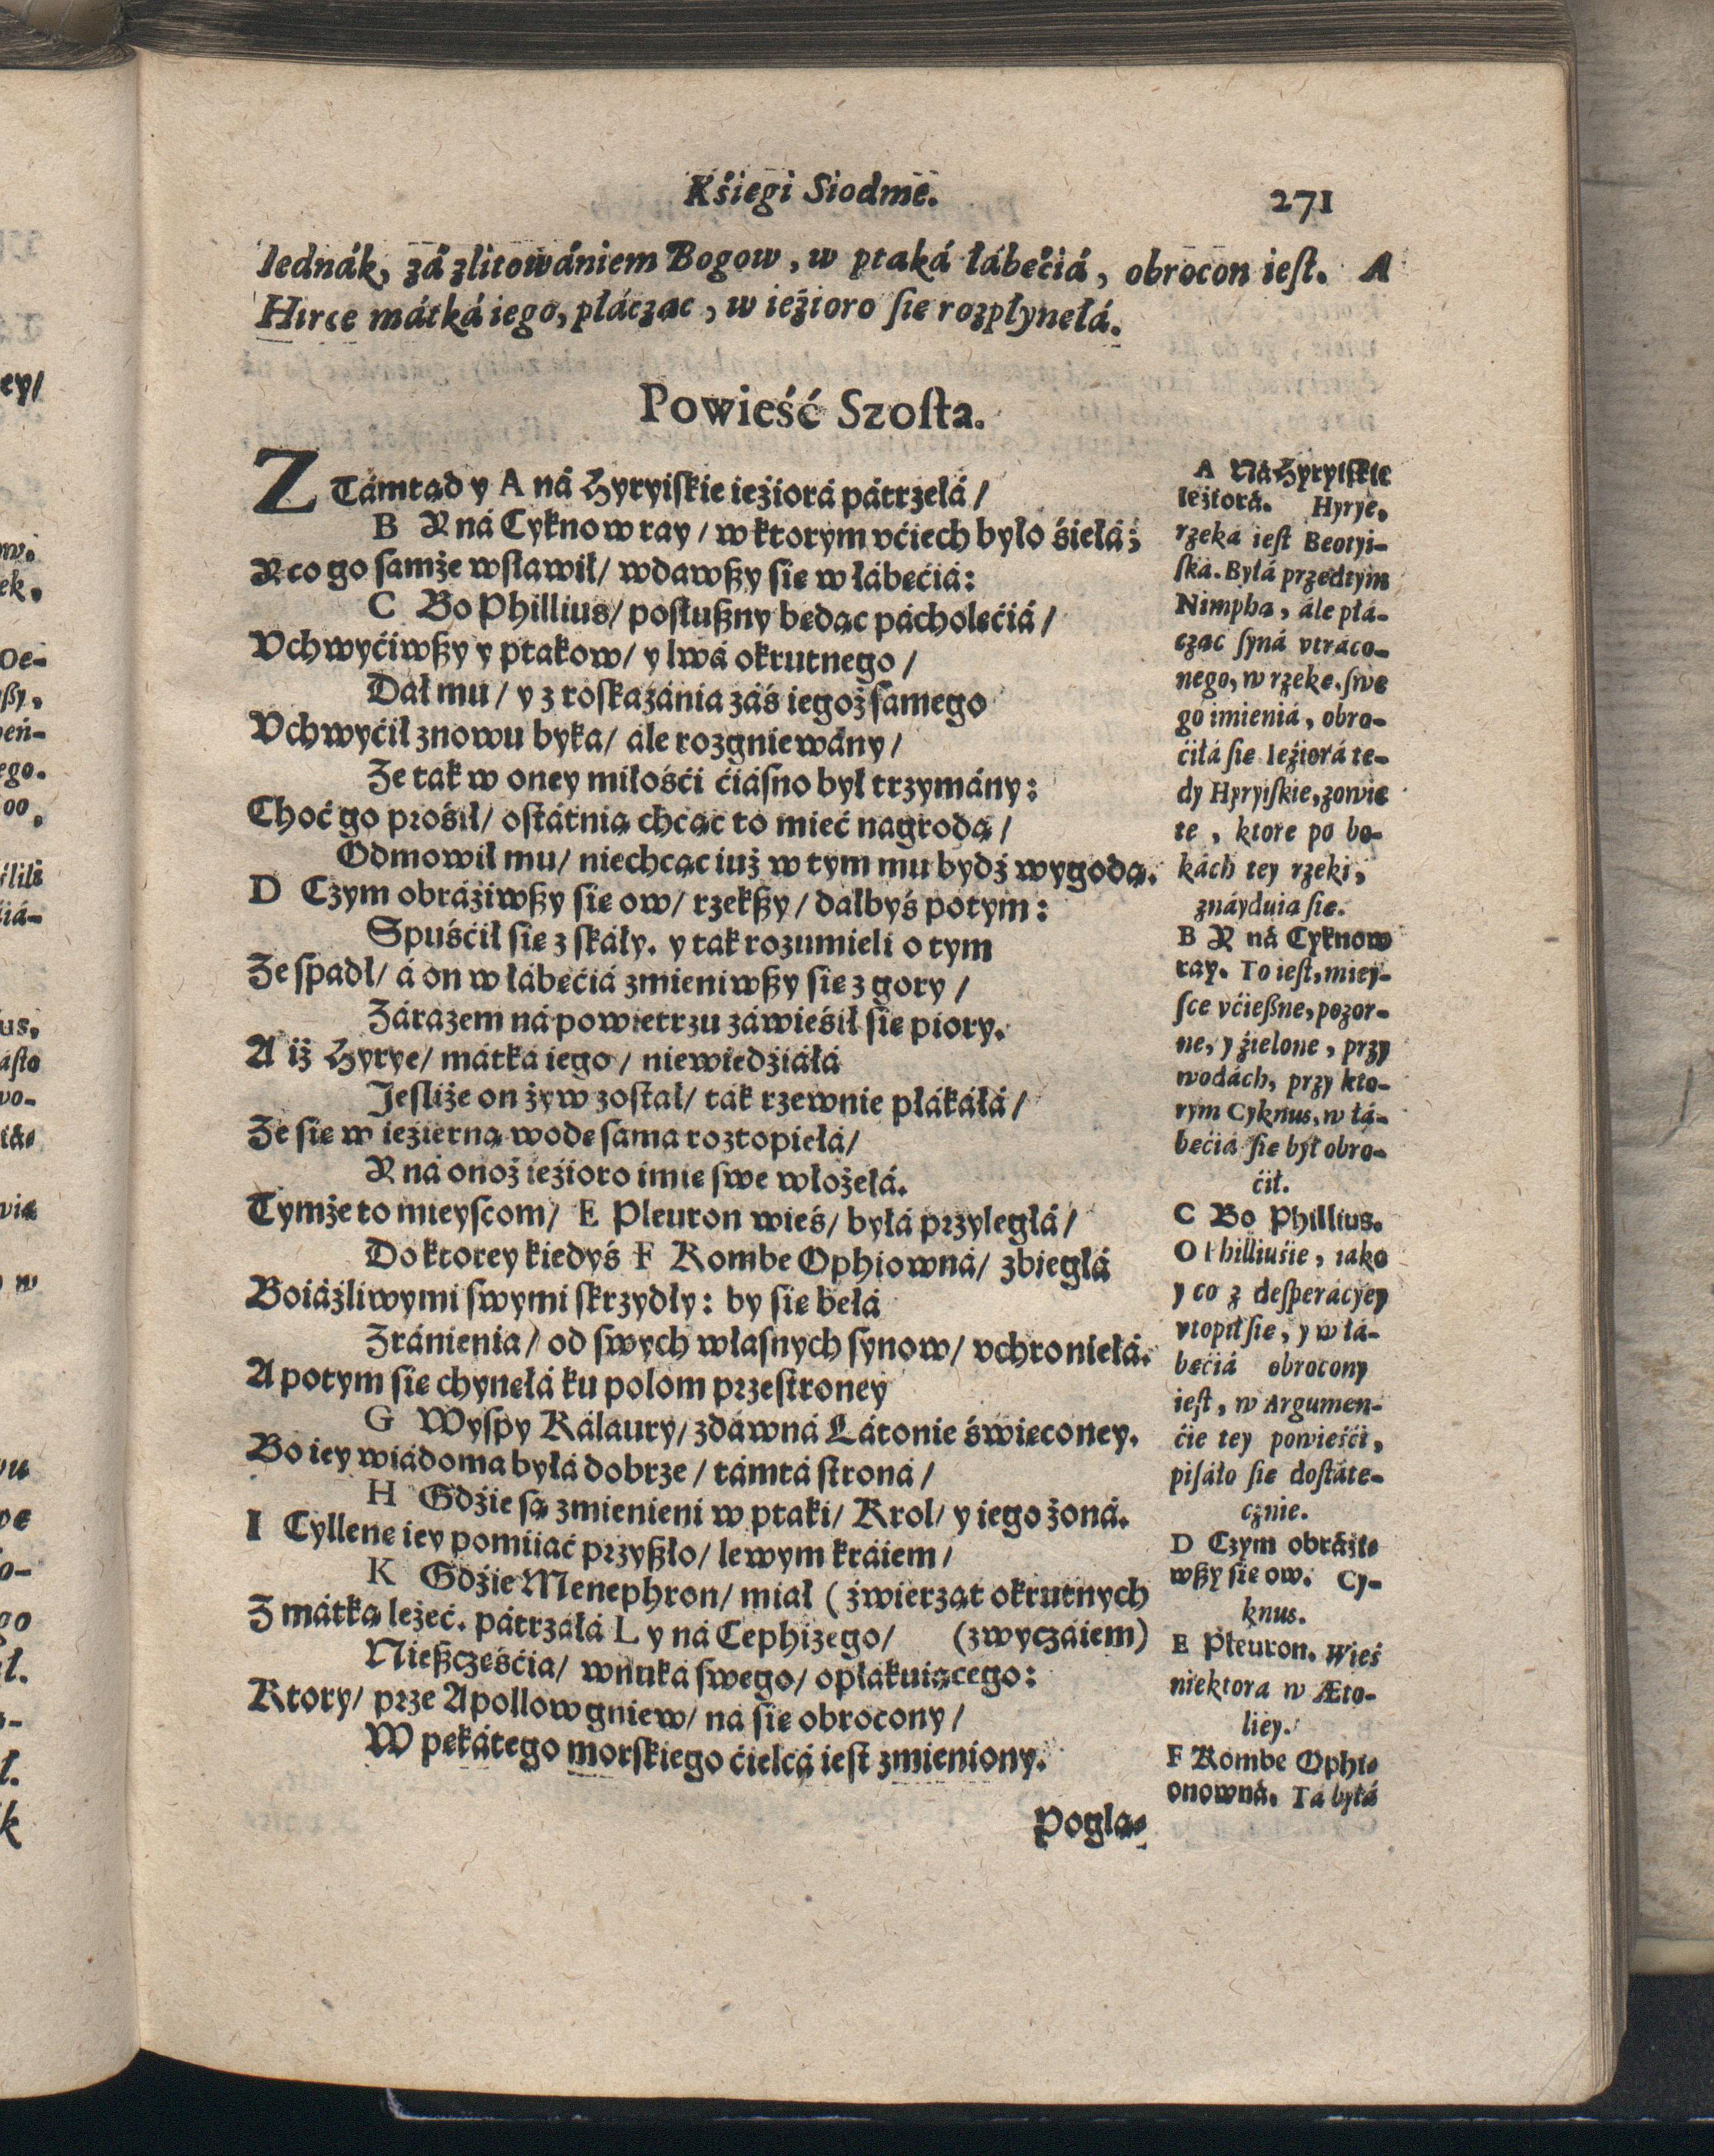 Kśiegi Siodme. 271
Iednák, zá zlitowániem Bogow, w ptaká łábećiá, obrocon iest. A
Hırce mátká iego, płácząc, w ieźioro sie rozpłynełá.
Powieść Szosta.
Z Támtąd y A ná Hyryiskie ieźiorá pátrzełá /
B Y ná Cyknow ray / w ktorym vćiech było śiełá;
Y co go samże wsławił / wdawszy sie w łábećiá:
C Bo Phillius / posłuszny bedąc pácholećiá /
Vchwyćiwszy y ptakow / y lwá okrutnego /
Dał mu / y z roskazánia záś iegoż samego
Vchwyćił znowu byka / ále rozgniewány /
Ze tak w oney miłośći ćiásno był trzymány:
Choć go prośił / ostátnią chcąc to mieć nagrodą /
Odmowił mu / niechcąc iuż w tym mu bydź wygodą.
D Czym obráźiwszy sie ow / rzekszy / dałbyś potym:
Spuśćił sie z skáły. y tak rozumieli o tym
Ze spadł / á on w łábećiá zmieniwszy sie z gory /
Zárazem ná powietrzu záwieśił sie piory.
A iż Hyrye / mátká iego / niewiedźiáłá
Jesliże on żyw został / tak rzewnie płákáłá /
Ze sie w ieźierną wode sama roztopiełá /
Y ná onoż ieźioro imie swe włożełá.
Tymże to mieyscom / E Pleuron wieś / byłá przyległá /
Do ktorey kiedyś F Kombe Ophiowná / zbiegłá
Boiáźliwymi swymi skrzydły: by sie bełá
Zránienia / od swych własnych synow / vchroniełá.
A potym sie chynełá ku polom przestroney
G Wyspy Kálaury / zdáwná Látonie świeconey.
Bo iey wiádoma byłá dobrze / támtá stroná /
H Gdźie są zmienieni w ptaki / Krol / y iego żoná.
I Cyllene iey pomiiać przyszło / lewym kráiem /
K Gdźie Menephron / miał (źwierząt okrutnych
Z mátką leżeć. pátrzáłá L y ná Cephizego / (zwyczáiem)
Nieszcześćia / wnuká swego / opłakuiącego:
Ktory / prze Apollow gniew / ná sie obrocony /
W pekátego morskiego ćielcá iest zmieniony.
Poglą-
A Ná Hyryiskie
ieźiorá. Hyrye,
rzeka iest Beotyi-
ska. Byłá przedtym
Nimpha, ále płá-
cząc syná vtráco-
nego, w rzeke. swe
go imieniá, obro-
ćiłá sie Ieźiorá te-
dy Hyryiskie, zowie
te, ktore po bo-
kách tey rzeki,
znáyduia sie.
B Y ná Cyknow
ray. To iest, miey-
sce vćieszne, pozor-
ne, y źielone, przy
wodách, przy kto-
rym Cyknus, w łá-
bećiá sie był obro-
ćił.
C Bo Phillius.
O Philliuśie, iako
y co z desperácyey
vtopił sie, y w łá-
bećiá obrocony
iest, w Argumen-
ćie tey powieśći,
pisáło sie dostáte-
cznie.
D Czym obráźi-
wszy sie ow. Cy-
knus.
E Pleuron. Wieś
niektora w Æto-
liey.
F Kombe Ophi-
onowná. Tá byłá